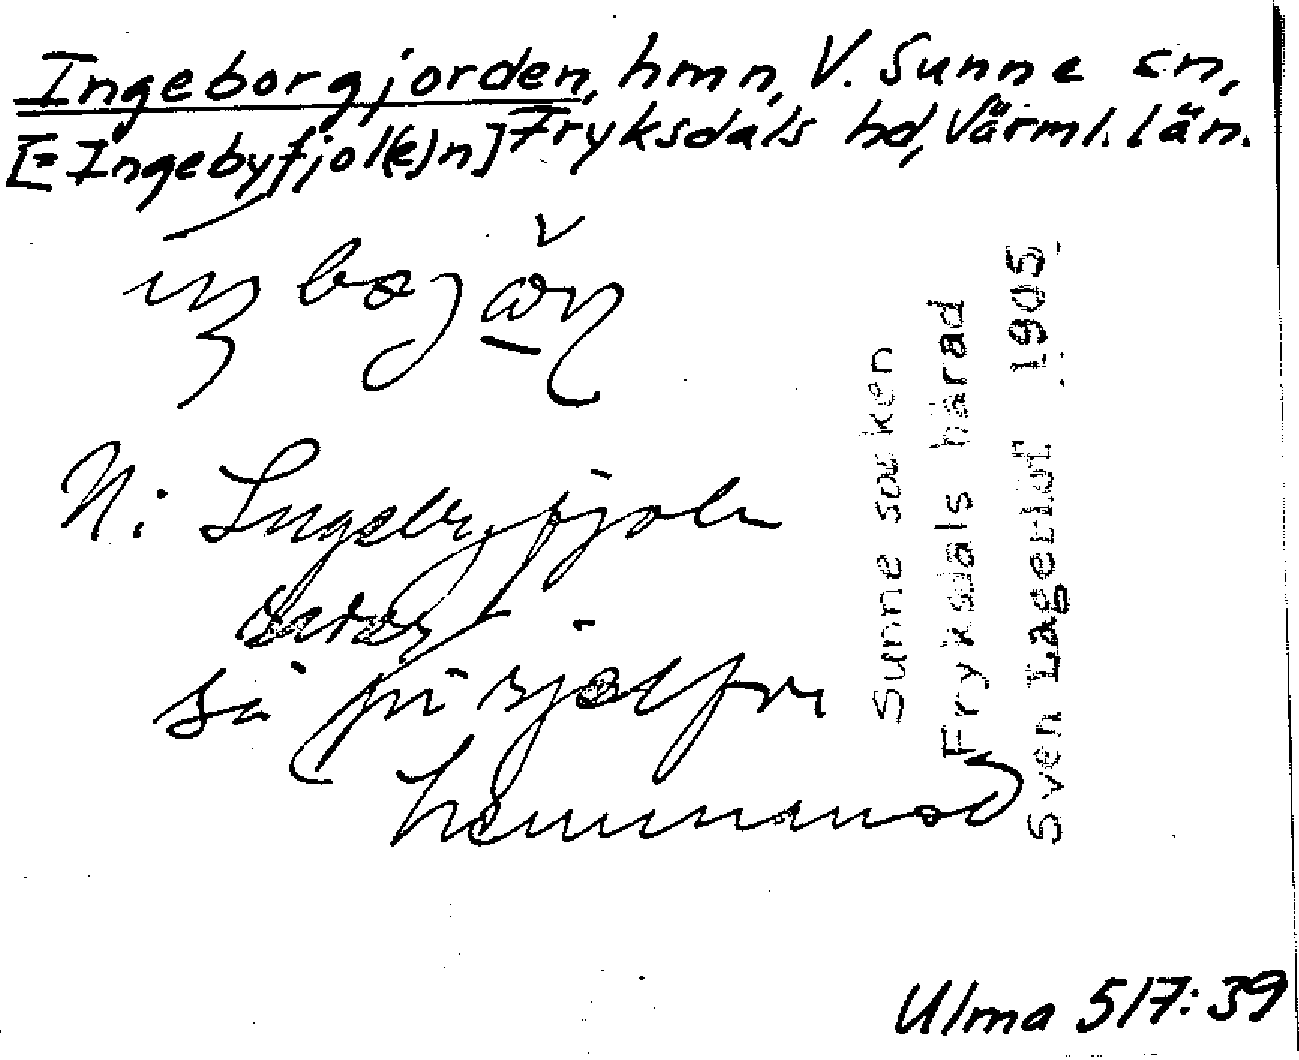 Ingeborgjorden, hmn, V. Sunne sn,
[= Ingebyfjol(e)n] Fryksdals hd, Värml. län.
N: Ingebyfjoln
så på
hemmaned
Sunne socken
Fryksdals härad
Sven Lagerlöf 1905
Ulma 517:39